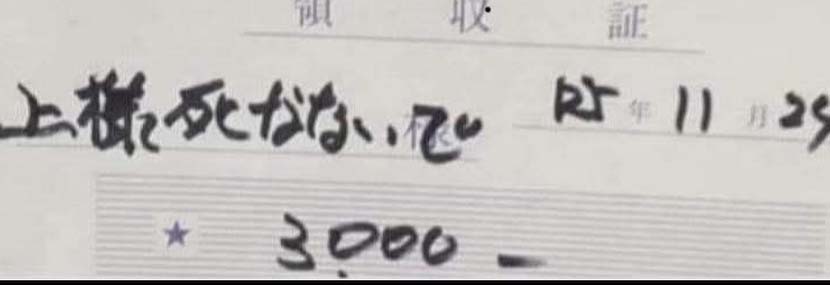 領収証
上様死なないで 様 H25年11月29
★ 3,000-